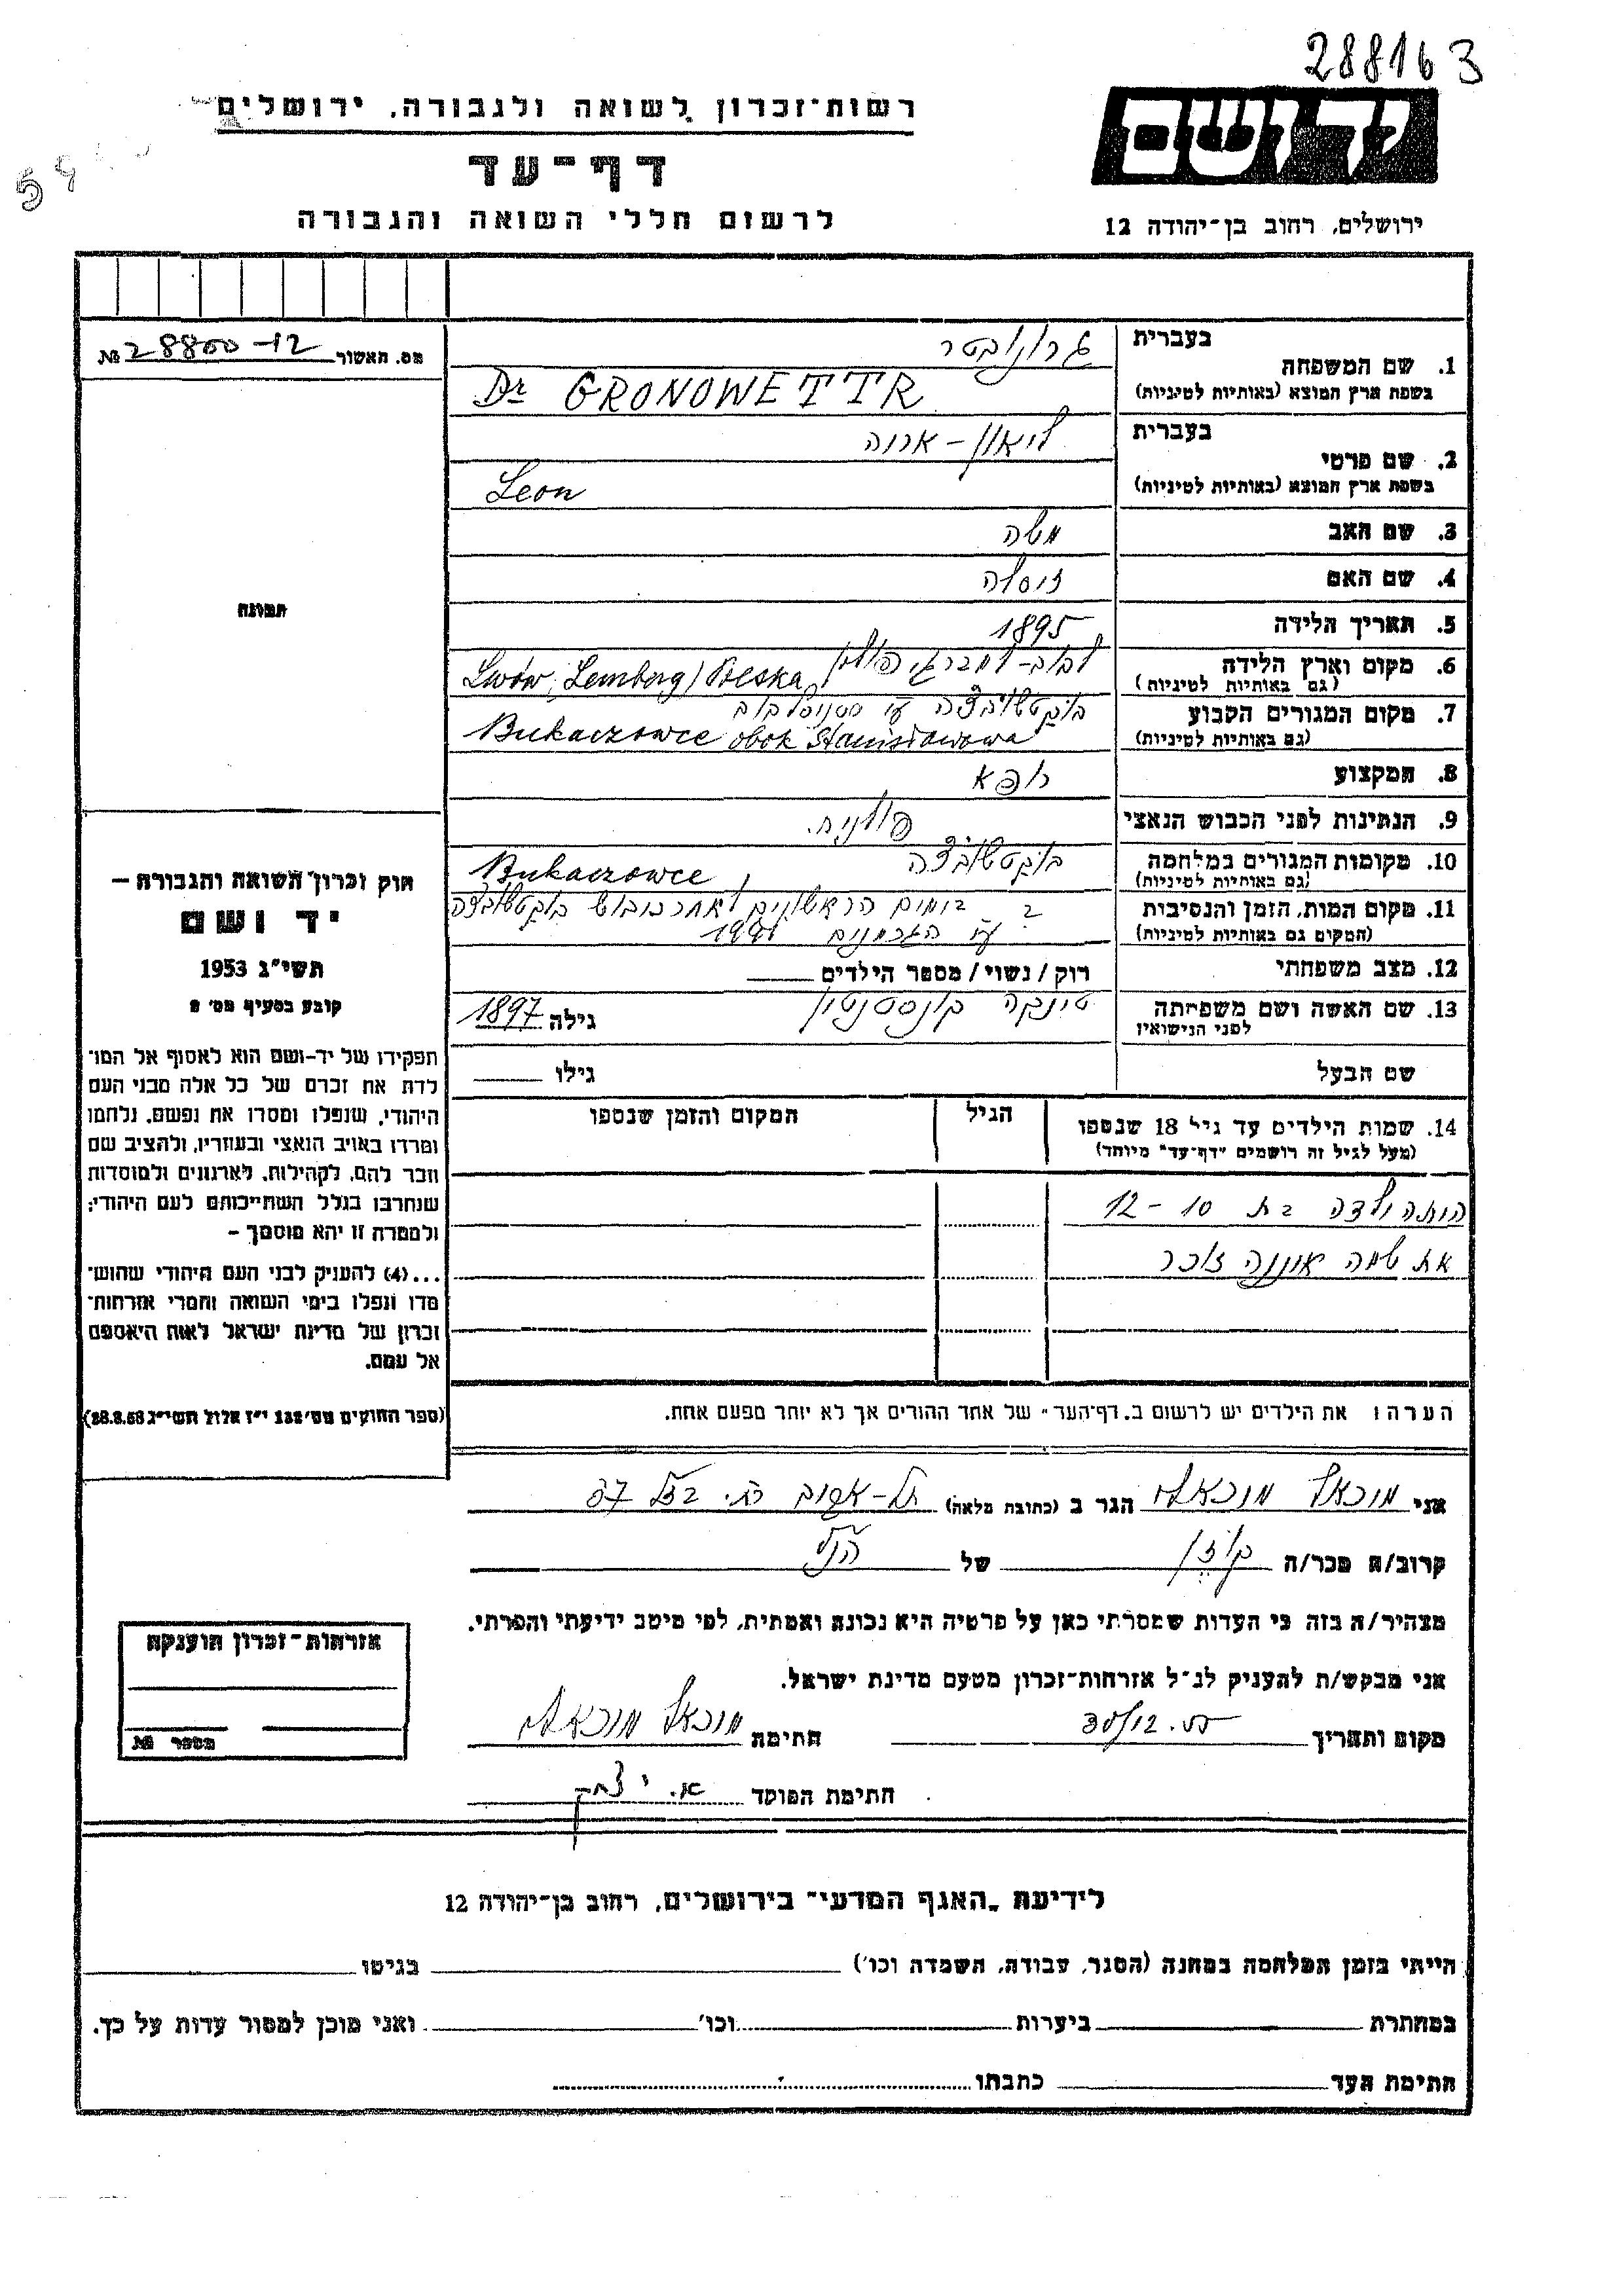 288163
יד ושם
רשות־זכרון לשואה ולגבורה, ירושלים
דף־עד
לרשום חללי השואה והגבורה
ירושלים, רחוב בן־יהודה 12
מס. תאשור 28800-12 №
בעברית
1. שם המשפחה
בשפת ארץ המוצא (באותיות לטיניות)
גרונובטר
Dr GRONOWETTR
בעברית
2. שם פרטי
בשפת ארץ המוצא (באותיות לטיניות)
ליאון - אריה
Leon
3. שם האב
משה
4. שם האם
5. תאריך הלידה
1895
6. מקום וארץ הלידה
(גם באותיות לטיניות)
לבוב - למברג, פולין
Lwów, Lemberg / Polska
7. מקום המגורים הקבוע
(גם באותיות לטיניות)
בוקטשובצה ע"י סטניסלבוב
Bukaczowce obok Stanisławowa
8. המקצוע
רופא
9. הנתינות לפני הכבוש הנאצי
פולנית.
10. מקומות המגורים במלחמה
(גם באותיות לטיניות)
בוקטשובצה
Bukaczowce
11. מקום המות, הזמן והנסיבות
(המקום גם באותיות לטיניות)
? - בימים הראשונים לאחר כיבוש בוקטשובצה
ע"י הגרמנים 1941
12. מצב משפחתי
רוק / נשוי / מספר הילדים
13. שם האשה ושם משפחתה
לפני הנישואין
קונסטנטין
גילה 1897
שם הבעל
גילו
14. שמות הילדים עד גיל 18 שנספו
(מעל לגיל זה רושמים "דף־עד" מיוחד)
הגיל
המקום והזמן שנספו
היתה ילדה בת 10-12
את שמה אינני זוכר
הערה: את הילדים יש לרשום ב„דף־העד" של אחד ההורים אך לא יותר מפעם אחת.
תמונה
חוק זכרון השואה והגבורה —
יד ושם
תשי"ג 1953
קובע בסעיף מס' 2
תפקידו של יד־ושם הוא לאסוף אל המו־
לדת את זכרם של כל אלה מבני העם
היהודי, שנפלו ומסרו את נפשם, נלחמו
ומרדו באויב הנאצי ובעוזריו, ולהציב שם
וזכר להם, לקהילות, לארגונים ולמוסדות
שנחרבו בגלל השתייכותם לעם היהודי;
ולמטרה זו יהא מוסמך —
...(4) להעניק לבני העם היהודי שהוש־
מדו ונפלו בימי השואה והמרי אזרחות־
זכרון של מדינת ישראל לאות היאספם
אל עמם.
(ספר החוקים מס' 132 י"ז אלול תשי"ג 28.8.53)
אני הגר ב (כתובת מלאה) תל-אביב
קרוב/ה מכר/ה קוזין של הנ"ל
מצהיר/ה בזה כי העדות שמסרתי כאן על פרטיה היא נכונה ואמתית, לפי מיטב ידיעתי והכרתי.
אני מבקש/ת להעניק לנ"ל אזרחות־זכרון מטעם מדינת ישראל.
מקום ותאריך 30/12.55 חתימה
חתימת הפוקד א. יצחק
אזרחות־זכרון הוענקה
מספר №
לידיעת „האגף המדעי" בירושלים, רחוב בן־יהודה 12
הייתי בזמן המלחמה במחנה (הסגר, עבודה, השמדה וכו') בגיטו
במחתרת ביערות וכו' ואני מוכן למסור עדות על כך.
חתימת העד כתבתו